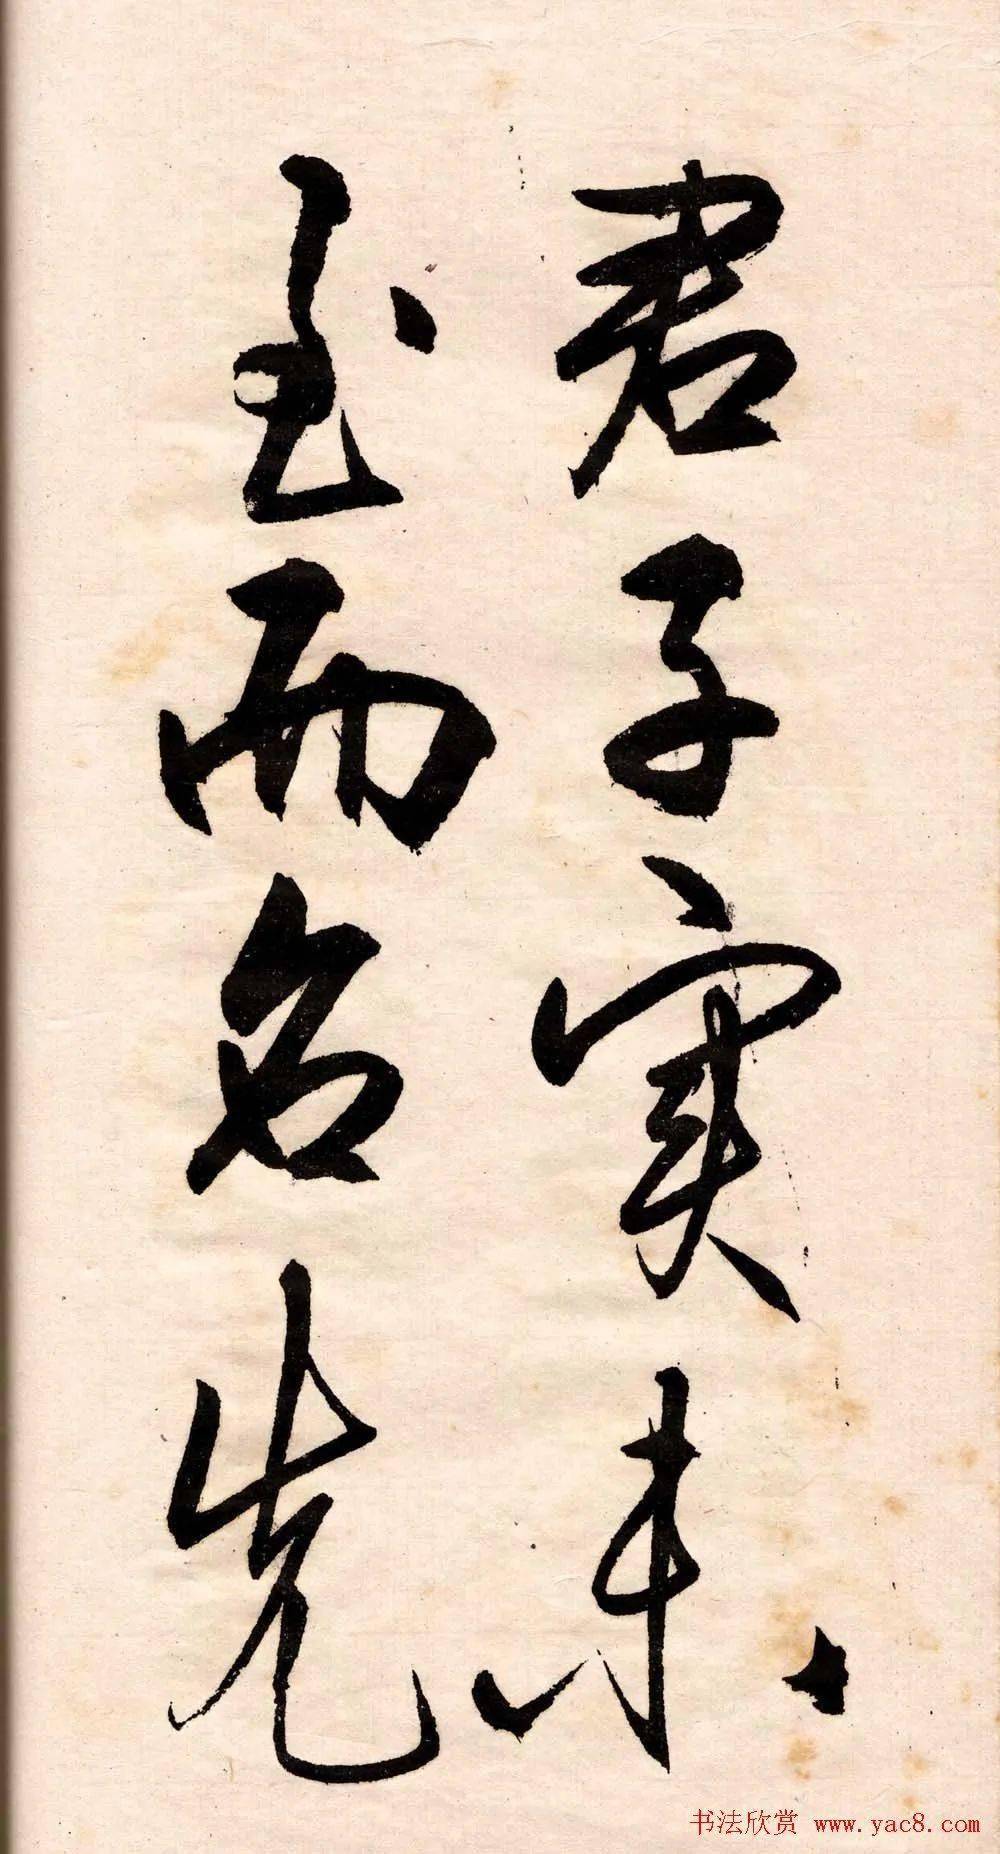 君子實未
至而名先
书法欣赏 www.yac8.com